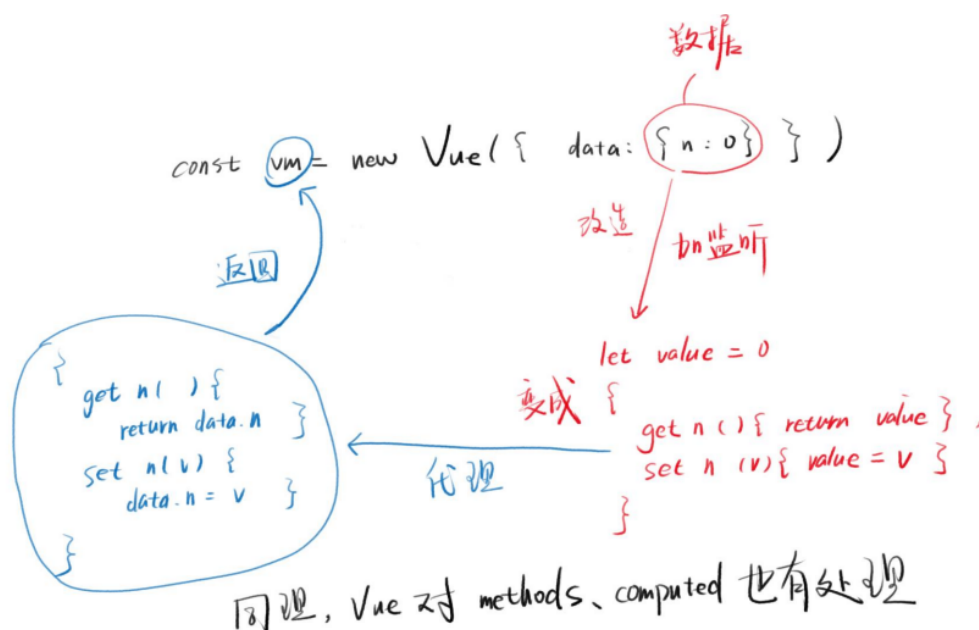 数据
const vm = new Vue({ data: {n:0} })
改造
加监听
返回
let value = 0
变成
{
get n(){ return value },
set n(v){ value = v }
}
代理
{
get n( ){
return data.n
}
set n(v) {
data.n = v
}
}
同理, Vue 对 methods、computed 也有处理